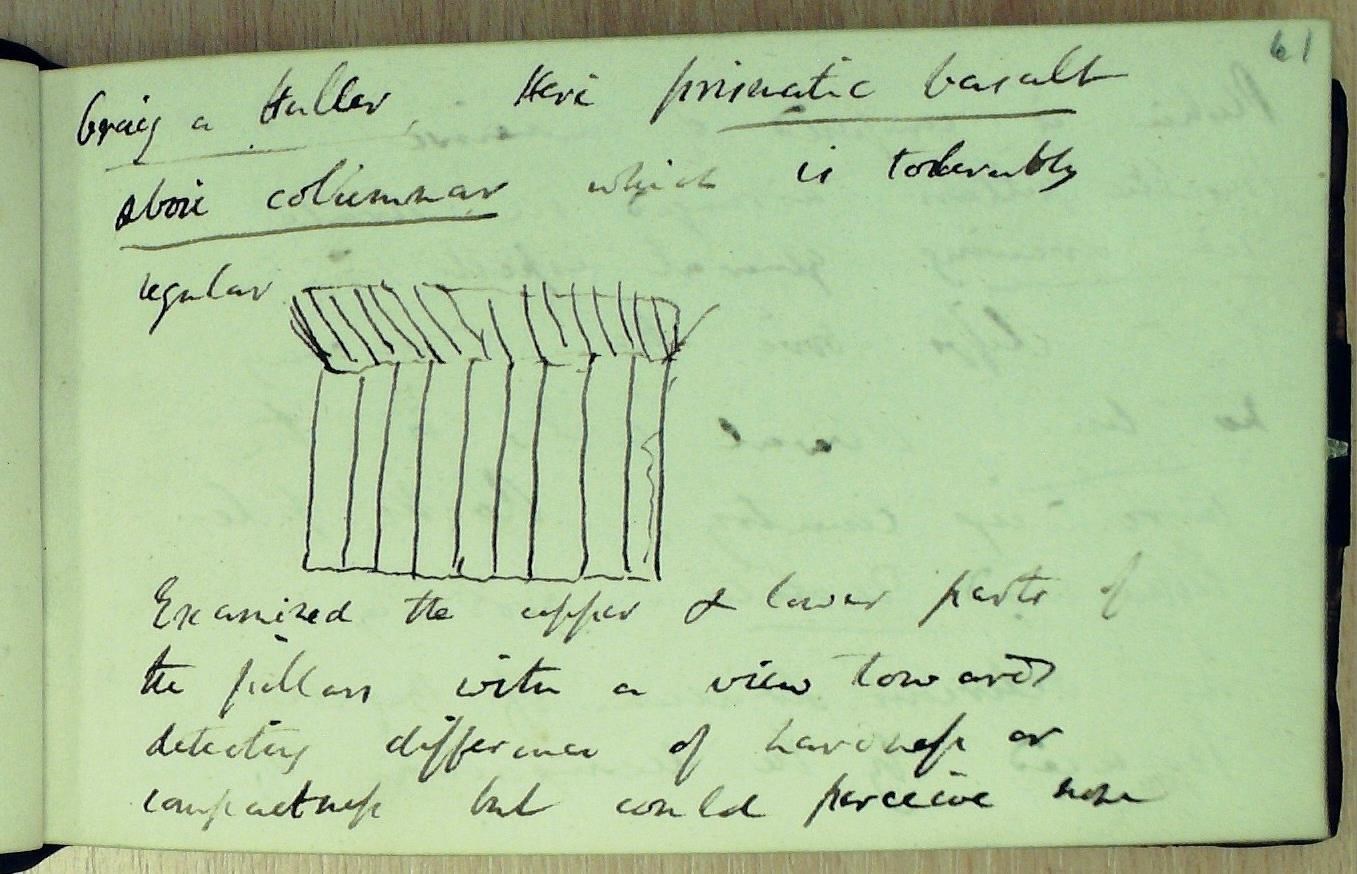 61
Craig a Huller. Here prismatic basalt
above columnar which is tolerably
regular
Examined the upper & lower parts of
the pillars with a view towards
detecting difference of hardness or
compactness but could perceive none